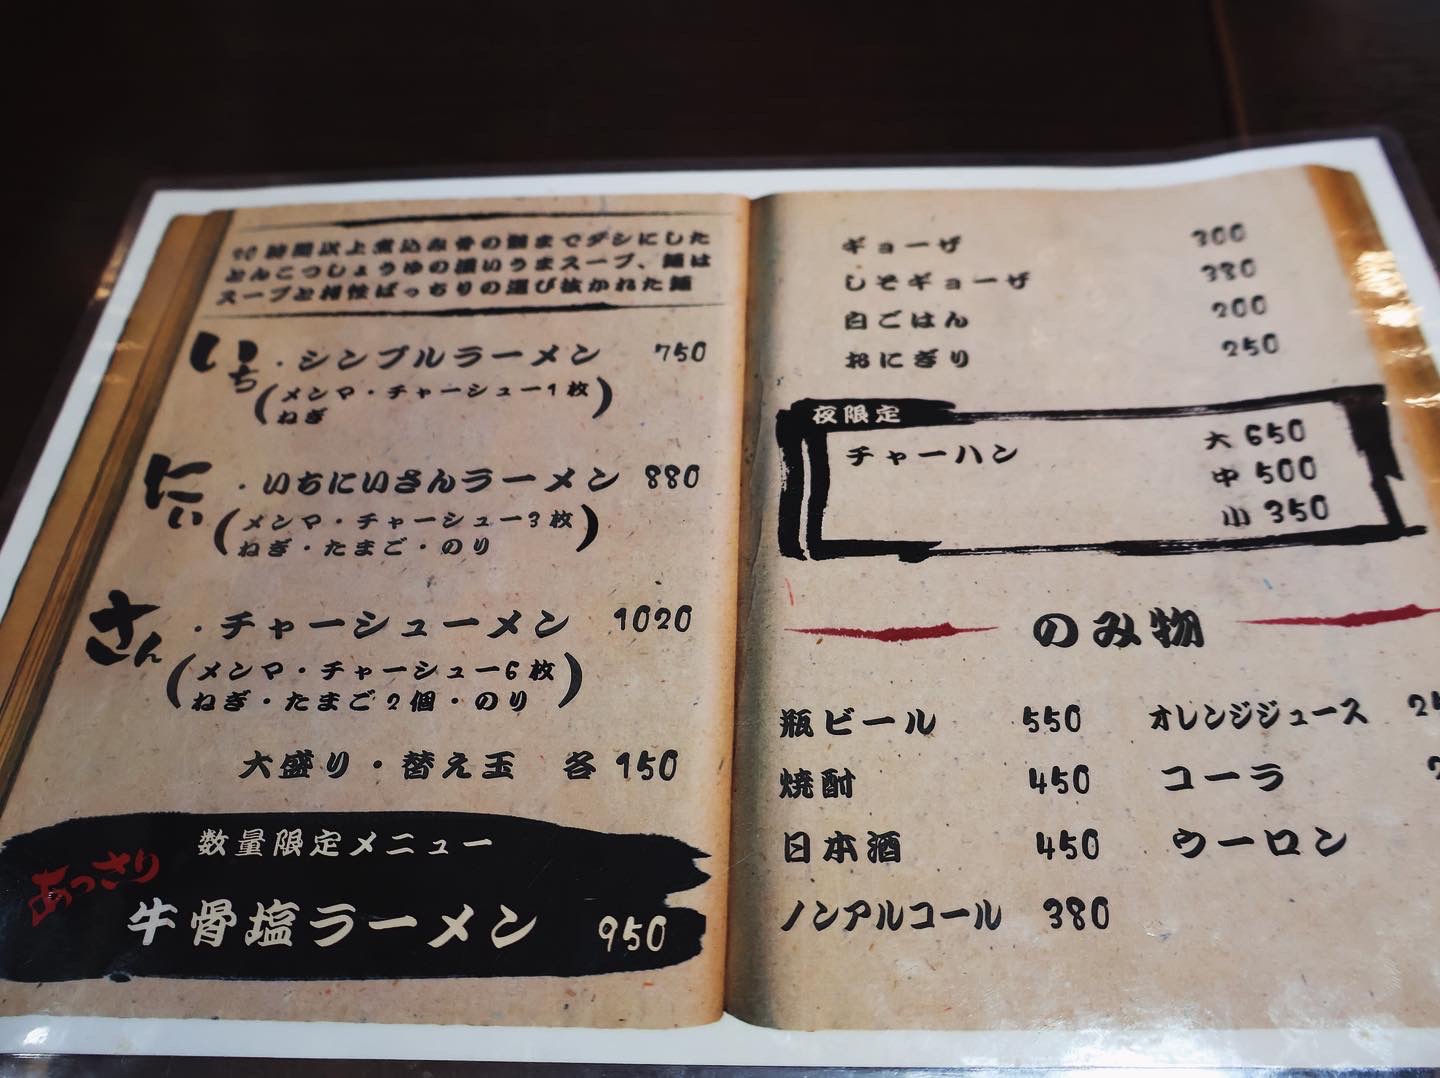 時間以上煮込み骨の髄までダシにした
とんこつしょうゆの濃いうまスープ、麺は
スープと相性ばっちりの選び抜かれた麺
いち・シンプルラーメン 750
(メンマ・チャーシュー1枚
ねぎ)
にい・いちにいさんラーメン 880
(メンマ・チャーシュー3枚
ねぎ・たまご・のり)
さん・チャーシューメン 1020
(メンマ・チャーシュー6枚
ねぎ・たまご2個・のり)
大盛り・替え玉 各150
数量限定メニュー
あっさり
牛骨塩ラーメン 950
ギョーザ 300
しそギョーザ 380
白ごはん 200
おにぎり 250
夜限定
チャーハン 大 650
中 500
小 350
のみ物
瓶ビール 550 オレンジジュース
焼酎 450 コーラ
日本酒 450 ウーロン
ノンアルコール 380